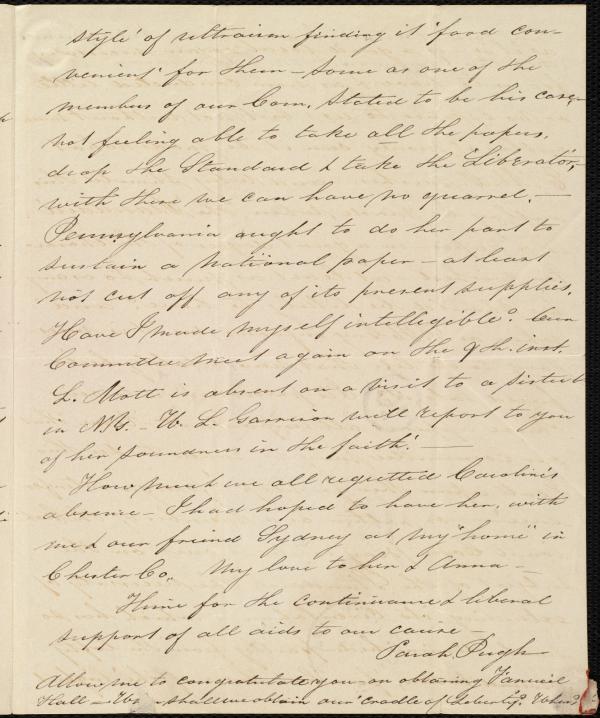 style' of ultraism finding it 'food con-
venient' for them – Some as one of the
members of our Com. stated to be his case,
not feeling able to take all the papers,
drop the Standard & take the "Liberator",
with these we can have no quarrel. –
Pennsylvania ought to do her part to
sustain a National paper – at least
not cut off any of its present supplies.
Have I made myself intellegible? Our
Committee meet again on the 9th. inst.
L. Mott is absent on a visit to a sister
in N.Y. – W. L. Garrison will report to you
of her 'soundness in the faith'. —
How much we all regretted Caroline's
absence – I had hoped to have her, with
me & our friend Sydney at my "home" in
Chester Co,, My love to her & Anna –
Thine for the continuance & liberal
support of all aids to our cause –
Sarah Pugh
Allow me to congratulate you on obtaining Faneuil
Hall – shall we obtain our 'Cradle of Liberty'? When?